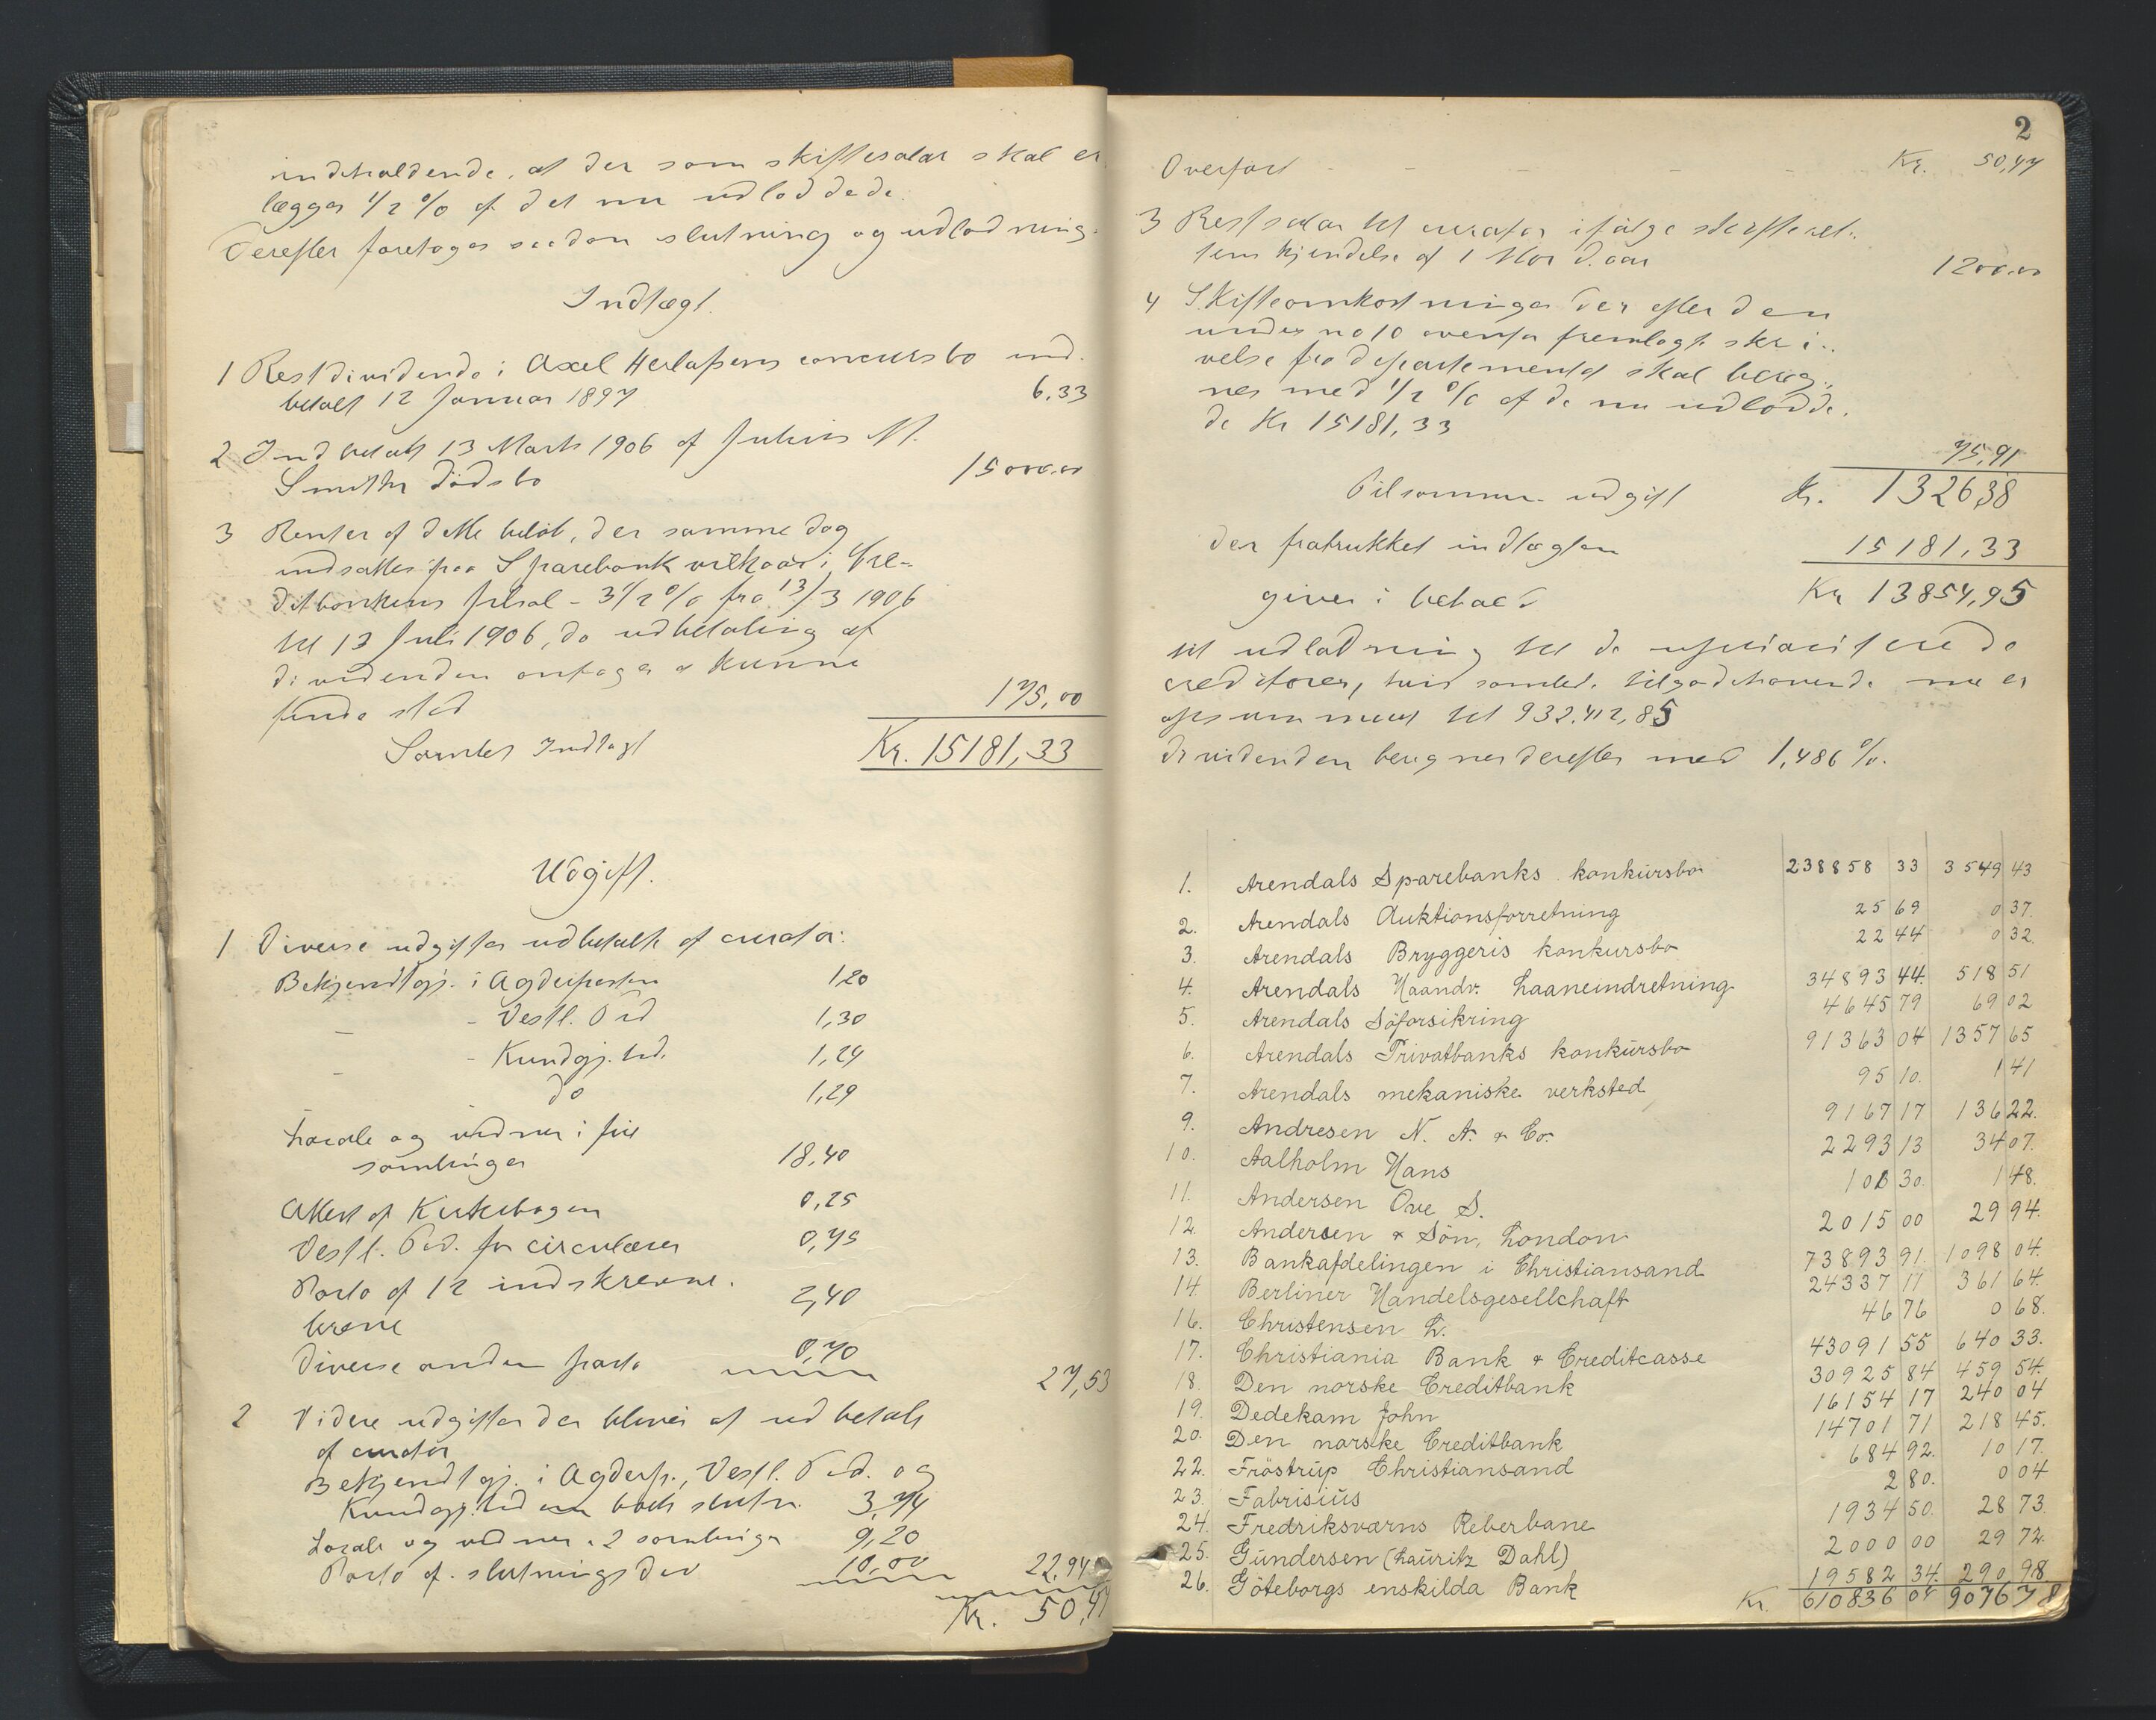 indholdende, at der som skiftesalar skal er
lægges 1/2 % af det nu udloddede.
Derefter foretoges saadan slutning og udlodning.
Indtægt.
1 Restdividende i Axel Herlofsens concursbo ind-
betalt 12 Januar 1897 6,33
2 Indbetalt 13 Marts 1906 af Julius M.
Smiths dödsbo 15000.00
3 Renter af dette belöb, der samme dag
indsattes paa Sparebank vilkaar i Cre-
ditbankens filial - 3 1/2 % fra 13/3 1906
til 13 Juli 1906, da udbetaling af
dividenden antages at kunne
finde sted 175,00
Samlet Indtægt Kr. 15181,33
Udgift.
1 Diverse udgifter udbetalt af curator:
Bekjendtgj. i Agderposten 1,20
- - Vestl. Tid 1,30
- - Kundgj. tid. 1,24
- do 1,29
Locale og vidner i fire
samlinger 18,40
Attest af Kirkebogen 0,25
Vestl. Tid. for circulærer 0,75
Porto af 12 indskrevne
breve 2,40
Diverse anden porto 0,70
27,53
2 Videre udgifter der bliver at udbetale
af curator
Bekjendtgj. i Agderp., Vestl. Tid. og
Kundgj. tid om boets slutn. 3,74
Locale og vidner i 2 samlinger 9,20
Porto af slutningsdiv 10,00 22,94
Kr. 50,47
2
Overfört - - - - Kr. 50,47
3 Restsalar til curator ifölge skifteret-
tens kjendelse af 1 Mai d. aar 1200.00
4 Skifteomkostninger der efter den
under no 10 ovenfor fremlagte skri-
velse fra departementet skal bereg-
nes med 1/2 % af de nu udlodde-
de Kr 15181,33
75,91
Tilsammen udgift Kr. 1326,38
der fratrukket indtægten 15181,33
giver i behold Kr 13854,95
til udlodning til de upriviligerede
creditorer, hvis samlede tilgodehavende nu er
opsummeret til 932.412,85
Dividenden beregnes derefter med 1,486 %.
1. Arendals Sparebanks konkursbo 238858 33 3549 43
2. Arendals Auktionsforretning 25 69 0 37.
3. Arendals Bryggeris konkursbo 22 44 0 32
4. Arendals Haandv. Laaneindretning 34893 44. 518 51
5. Arendals Söforsikring 4645 79 69 02
6. Arendals Privatbanks konkursbo 91363 04 1357 65
7. Arendals mekaniske verksted 95 10. 1 41
9. Andresen N. A. & Co. 9167 17 136 22.
10. Aalholm Hans 2293 13 34 07.
11. Andersen Ove S. 100 30. 1 48.
12 Andersen & Sön, London 2015 00 29 94.
13. Bankafdelingen i Christiansand 73893 91. 1098 04.
14 Berliner Handelsgesellchaft 24337 17 361 64.
16. Christensen L. 46 76 0 68.
17. Christiania Bank & Creditcasse 43091 55 640 33.
18. Den norske Creditbank 30925 84 459 54.
19. Dedekam John 16154 17 240 04
20. Den norske Creditbank 14701 71 218 45.
22. Fröstrup Christiansand 684 92. 10 17.
23. Fabrisius 2 80. 0 04
24. Fredriksvarns Reberbane 1934 50. 28 73.
25. Gundersen (Lauritz Dahl) 2000 00 29 72.
26. Göteborgs enskilda Bank 19582 34. 290 98
Kr. 610836 04 9076 78